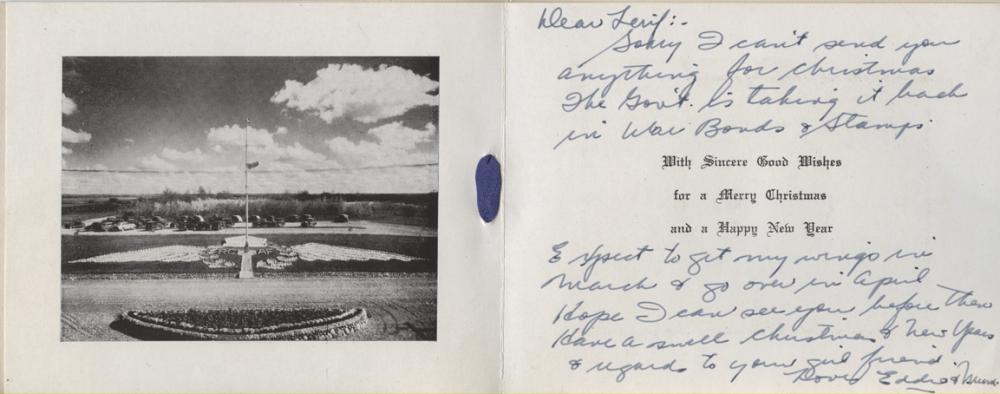 Dear Terif:-
Sorry I can't send you
anything for christmas
The Gov't. is taking it back
in War Bonds & Stamps
With Sincere Good Wishes
for a Merry Christmas
and a Happy New Year
Expect to get my wings in
March & go over in April
Hope I can see you before then
Have a swell Christmas & New Years
& regards to your girl friend.
Love Eddie &